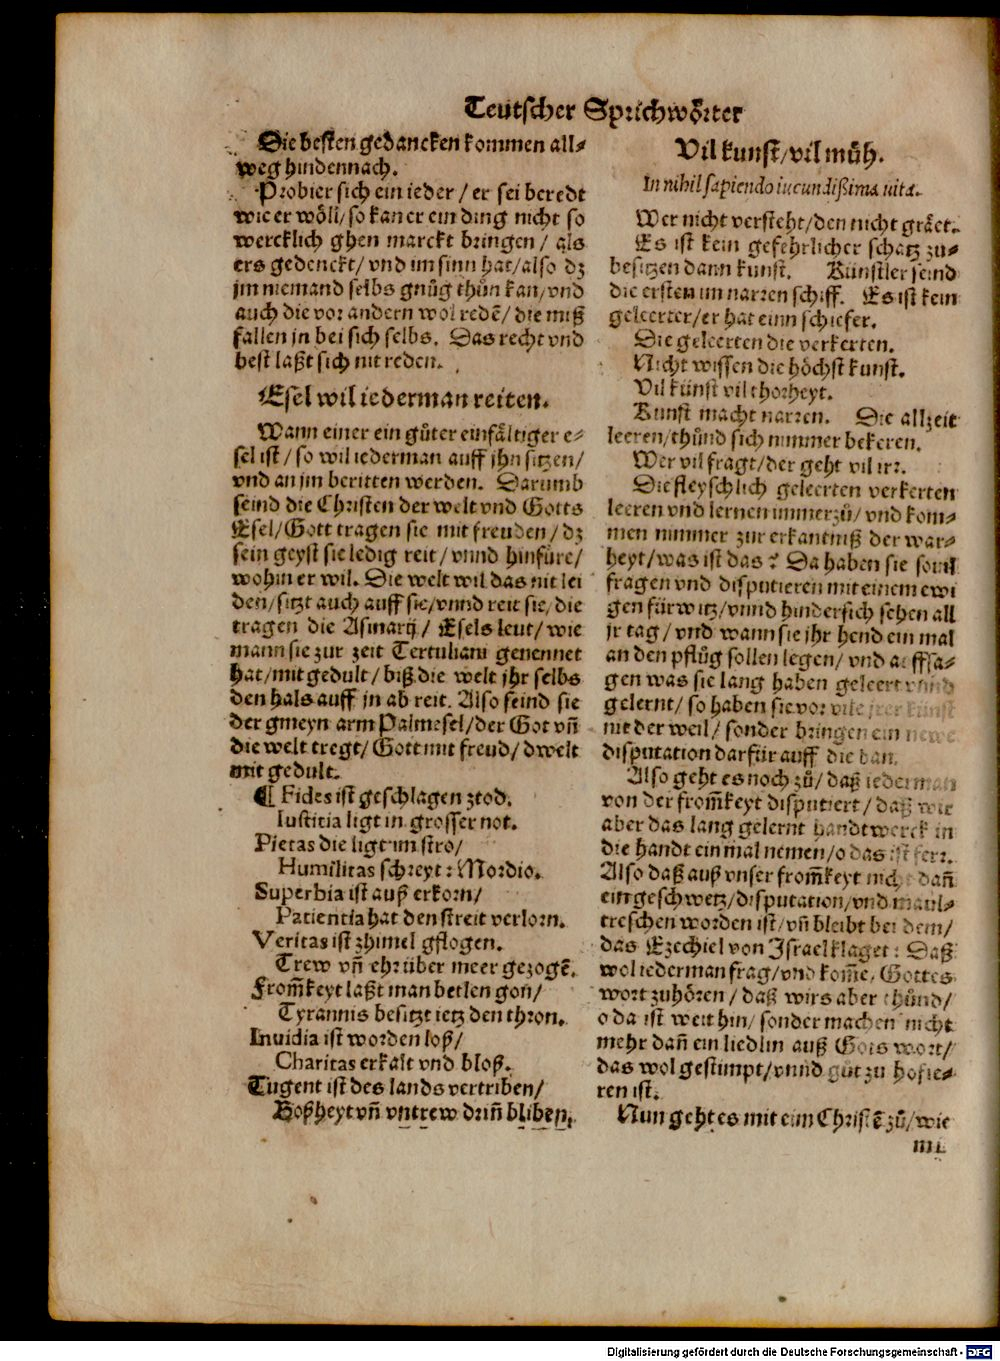 Teutscher Sprichwoͤrter
Die besten gedancken kommen all⸗
weg hindennach.
Probier sich ein ieder / er sei beredt
wie er woͤll/ so kan er ein ding nicht so
wercklich ghen marckt bringen / als
ers gedenckt/ vnd im sinn hat/ also dz
jm niemand selbs gnůg thůn kan/ vnd
auch die vor andern wol redē/ die miß
fallen jn bei sich selbs. Das recht vnd
best laßt sich nit reden.
Esel wil iederman reiten.
Wann einer ein gůter einfaͤltiger e⸗
sel ist / so wil iederman auff jhn sitzen/
vnd an jm beritten werden. Darumb
seind die Christen der welt vnd Gotts
Esel/ Gott tragen sie mit freuden/ dz
sein geyst sie ledig reit/ vnnd hinfuͤre/
wohin er wil. Die welt wil das nit lei
den/ sitzt auch auff sie/ vnnd reit sie/ die
tragen die Asinarij/ Esels leut/ wie
mann sie zur zeit Tertuliani genennet
hat/ mit gedult/ biß die welt jhr selbs
den hals auff jn ab reit. Also seind sie
der gmeyn arm Palmesel/ der Got vñ
die welt tregt/ Gott mit freud/ dwelt
mit gedult.
¶ Fides ist geschlagen ztod.
Iustitia ligt in grosser not.
Pietas die ligt im stro/
Humilitas schreyt : Mordio.
Superbia ist auß erkorn/
Patientia hat den streit verlorn.
Veritas ist zhimel gflogen.
Trew vñ ehr über meer gezogē.
From̃keyt laßt man betlen gon/
Tyrannis besitzt ietz den thron.
Inuidia ist worden loß/
Charitas erkalt vnd bloß.
Tugent ist des lands vertriben/
Boßheyt vñ vntrew drinn bliben.
Vil kunst/ vil muͤh.
In nihil sapiendo iucundißima uita.
Wer nicht versteht/ den nicht graͤet.
Es ist kein gefehrlicher schatz zu⸗
besitzen dann kunst. Kuͤnstler seind
die ersten im narren schiff. Es ist kein
geleerter/ er hat einn schiefer.
Die geleerten die verkerten.
Nicht wissen die hoͤchst kunst.
Vil kuͤnst vil thorheyt.
Kunst macht narren. Die allzeit
leeren/ thůnd sich nimmer bekeren.
Wer vil fragt/ der geht vil irr.
Die fleyschlich geleerten verkerten
leeren vnd lernen immerzů/ vnd kom⸗
men nimmer zur erkantniß der war⸗
heyt/ was ist das ? Da haben sie souil
fragen vnd disputieren mit einem ewi
gen fürwitz/ vnnd hindersich sehen all
jr tag / vnd wann sie jhr hend ein mal
an den pflůg sollen legen/ vnd auffsa⸗
gen was sie lang haben geleert vnnd
gelernt/ so haben sie vor vile jrer kunst
nit der weil/ sonder bringen ein newe
disputation darfür auff die ban.
Also geht es noch zů/ daß iederman
von der from̃keyt disputiert / daß wir
aber das lang gelernt handtwerck in
die handt ein mal nemen/ o das ist ferr.
Also daß auß vnser from̃keyt nicht dañ
ein geschwetz/ disputation/ vnd maul⸗
treschen worden ist/ vñ bleibt bei dem/
das Ezechiel von Israel klaget : Daß
wol iederman frag/ vnd kom̃e, Gottes
wort zuhoͤren / daß wirs aber thůnd/
o da ist weit hin/ sonder machen nicht
mehr dañ ein liedlin auß Gots wort/
das wol gestimpt/ vnnd gůt zu hofie⸗
ren ist.
Nun geht es mit eim Christē zů/ wie